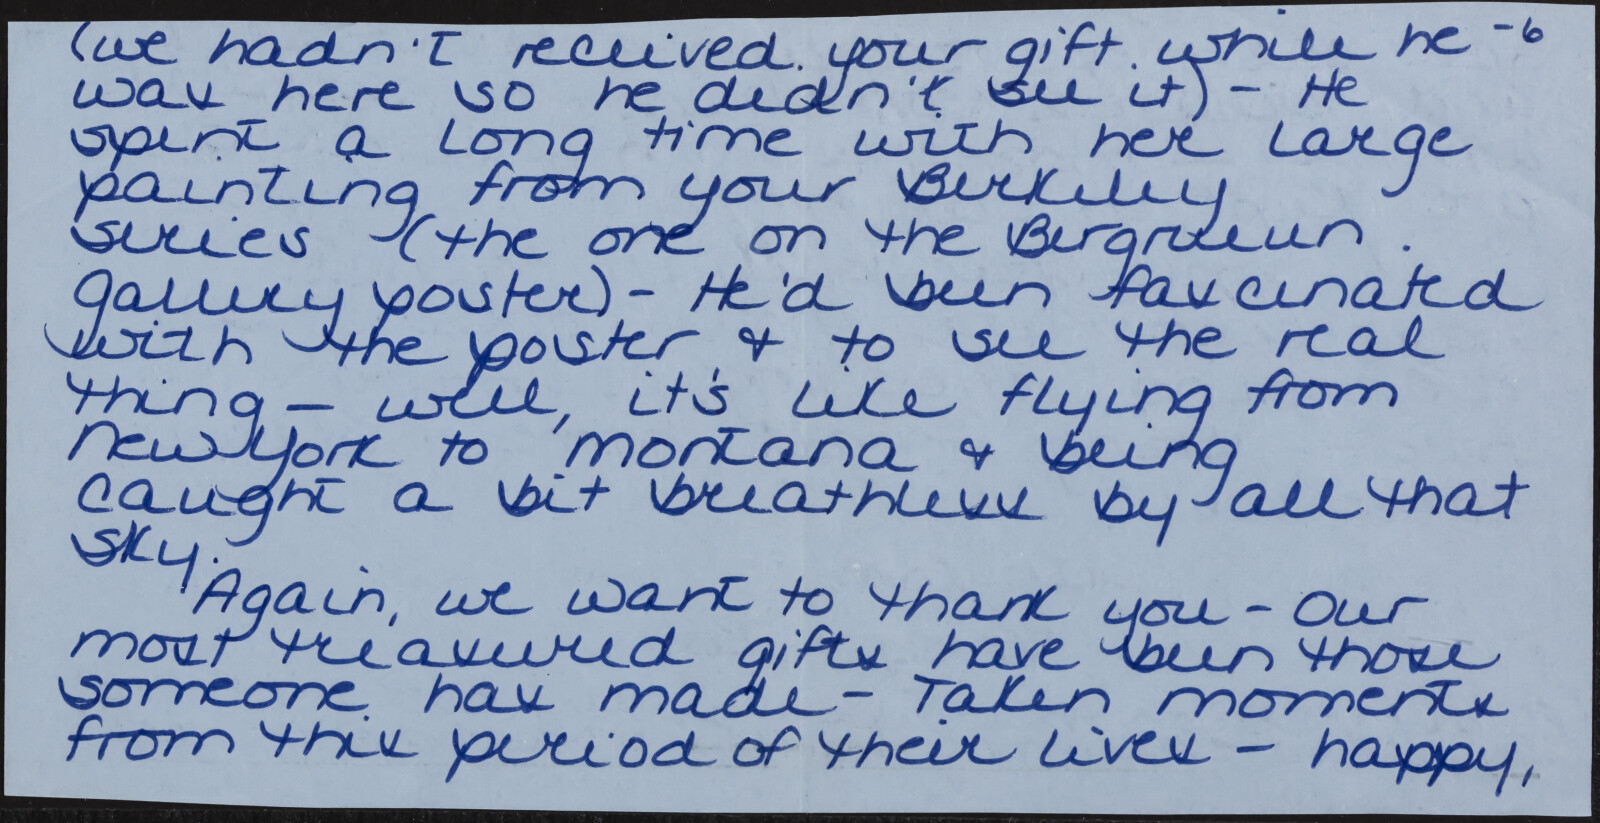 (we hadn't received your gift while he -6
was here so he didn't see it) - He
spent a long time with her large
painting from your Berkeley
series (the one on the Bergruen
gallery poster) - He'd been fascinated
with the poster & to see the real
thing - well, it's like flying from
New York to Montana & being
caught a bit breathless by all that
sky.
Again, we want to thank you - our
most treasured gifts have been those
someone has made - Taken moments
from this period of their lives - happy,